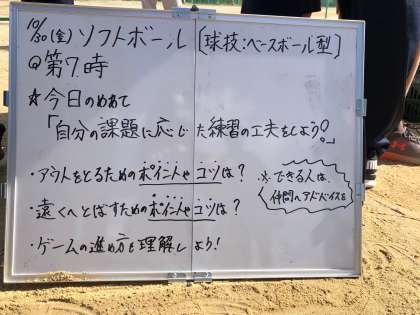 10/30(金) ソフトボール 〔球技:ベースボール型〕
@第7時
☆今日のめあて
「自分の課題に応じた練習の工夫をしよう!」
・アウトをとるためのポイントやコツは?
※できる人は、
仲間へアドバイスを
・遠くへとばすためのポイントやコツは?
・ゲームの進め方を理解しよう!